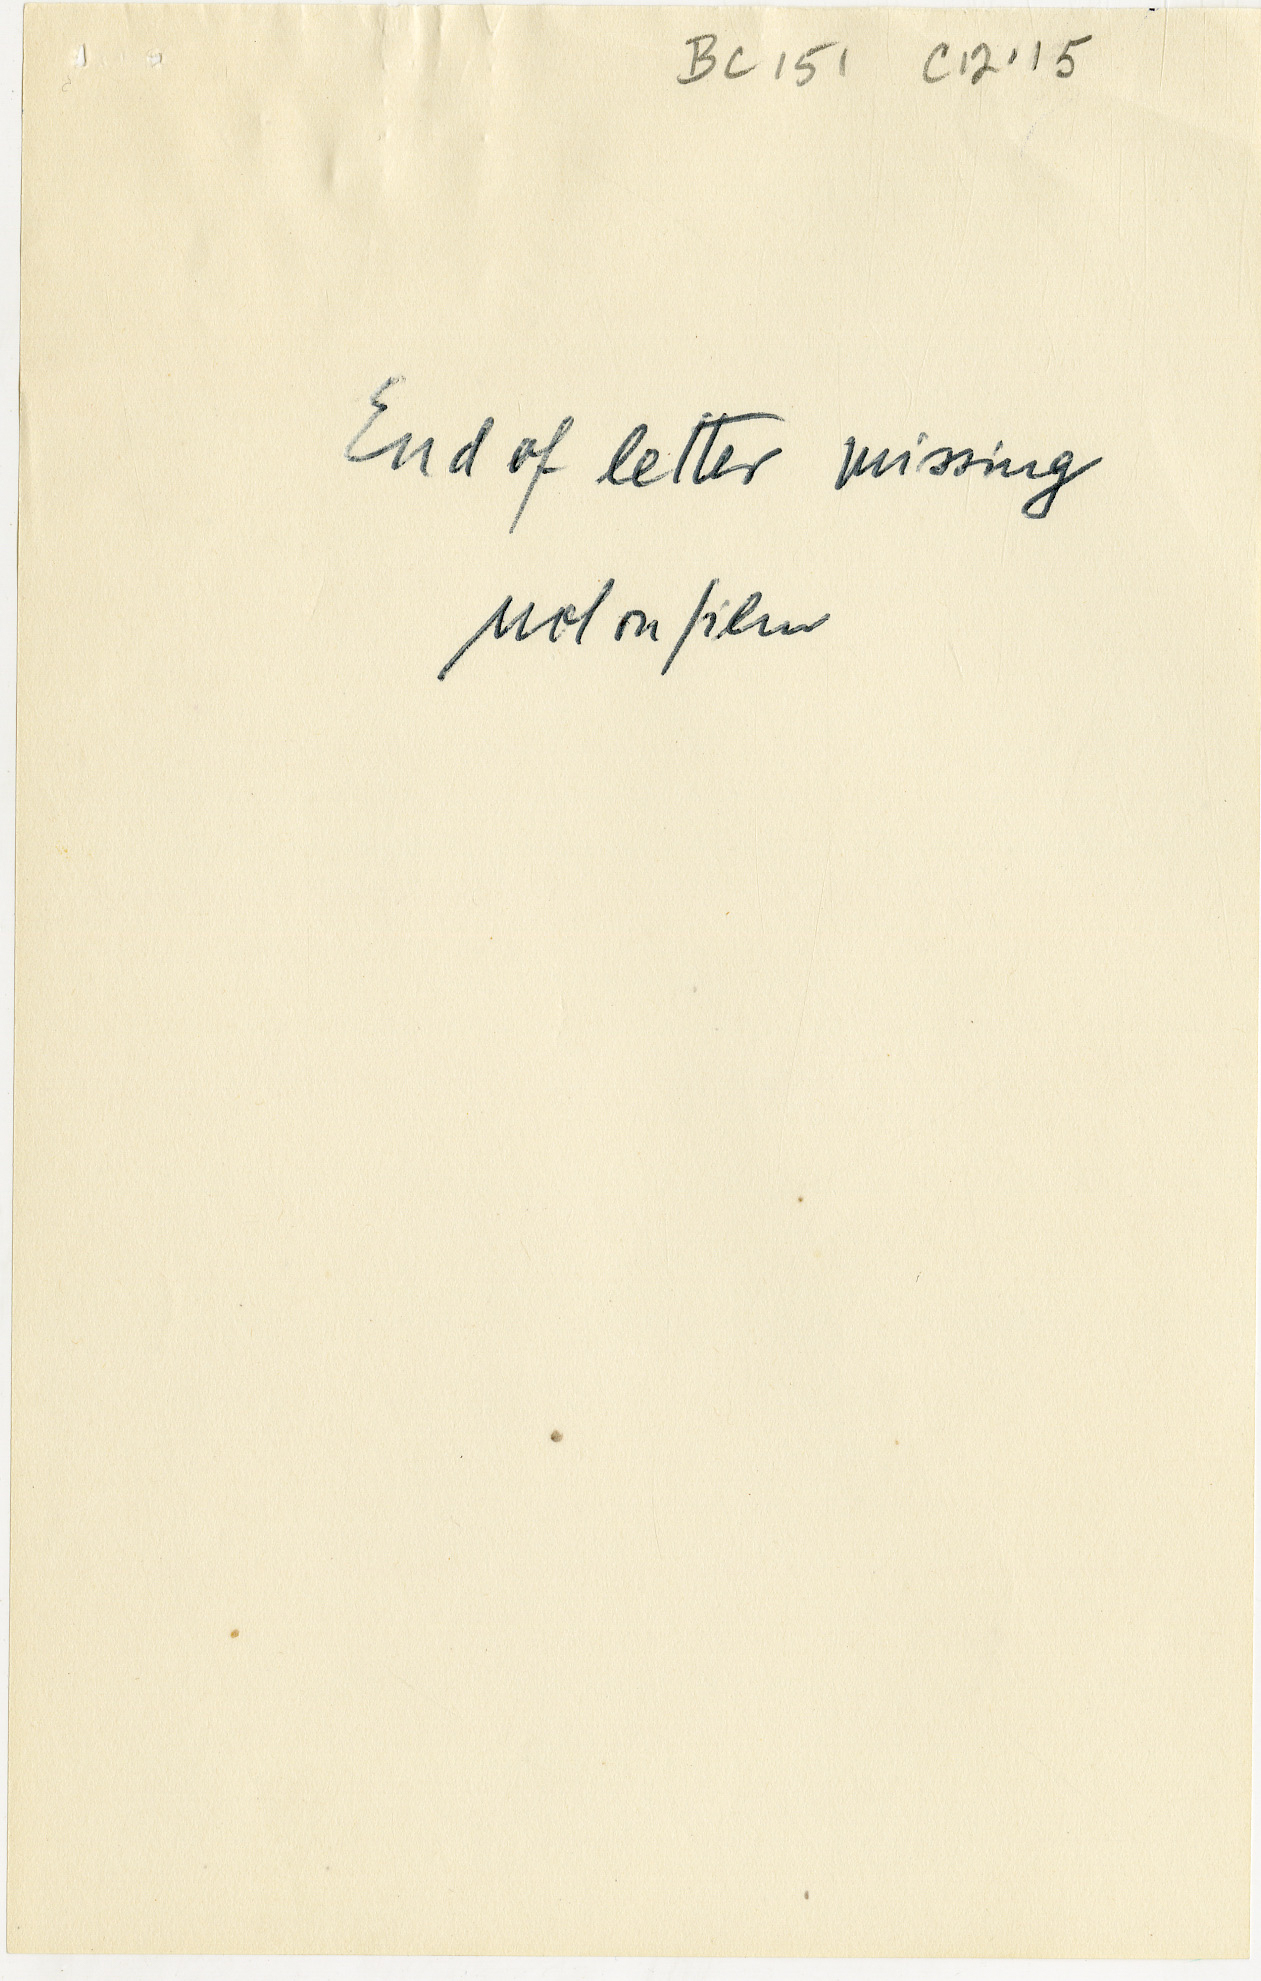 BC 151 C12.15
End of letter missing
Not on film